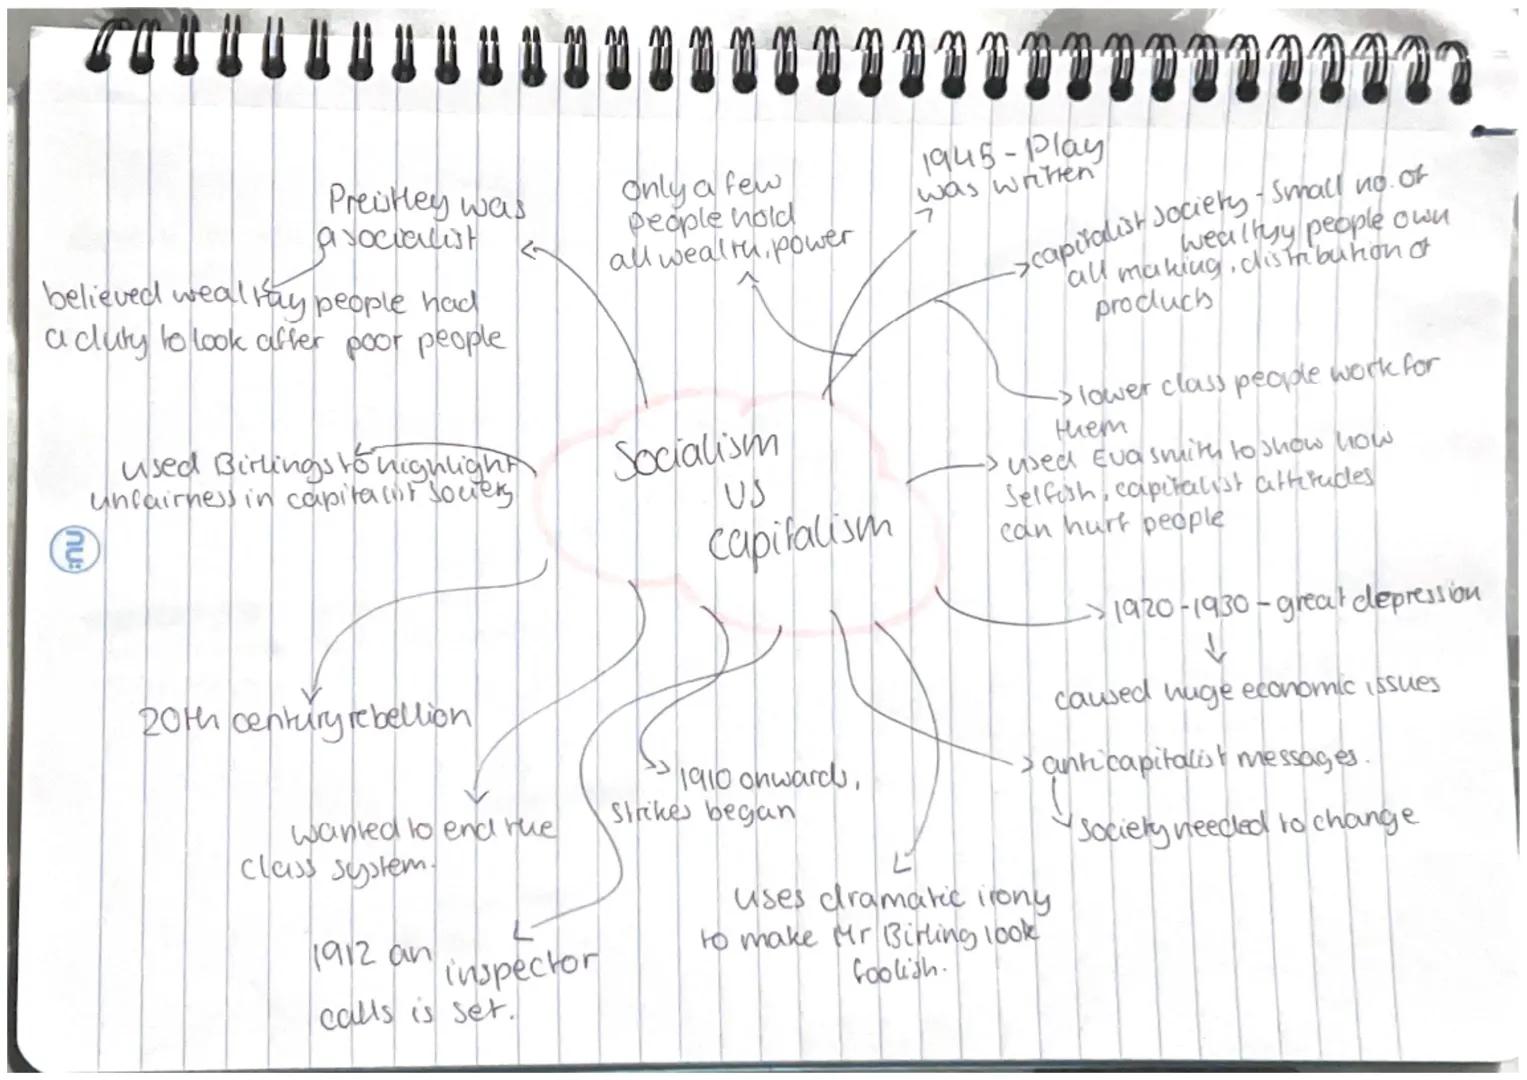 Preistley was
a socialist
believed wealthy people had
a duty to look after poor people
only a few
people hold
all wealth, power
1945 - Play
was written
capitalist society - small no. of
wealthyy people own
all making, distribution of
products
lower class people work for
them
used Eva smith to show how
selfish, capitalist attitudes
can hurt people
used Birlings to highlight
unfairness in capitalist society
Socialism
VS
capitalism
1920 - 1930 - great depression
caused huge economic issues
20th century rebellion
anti capitalist messages.
society needed to change
1910 onwards,
strikes began
wanted to end the
class system.
uses dramatic irony
to make Mr Birling look
foolish.
1912 an inspector
calls is set.